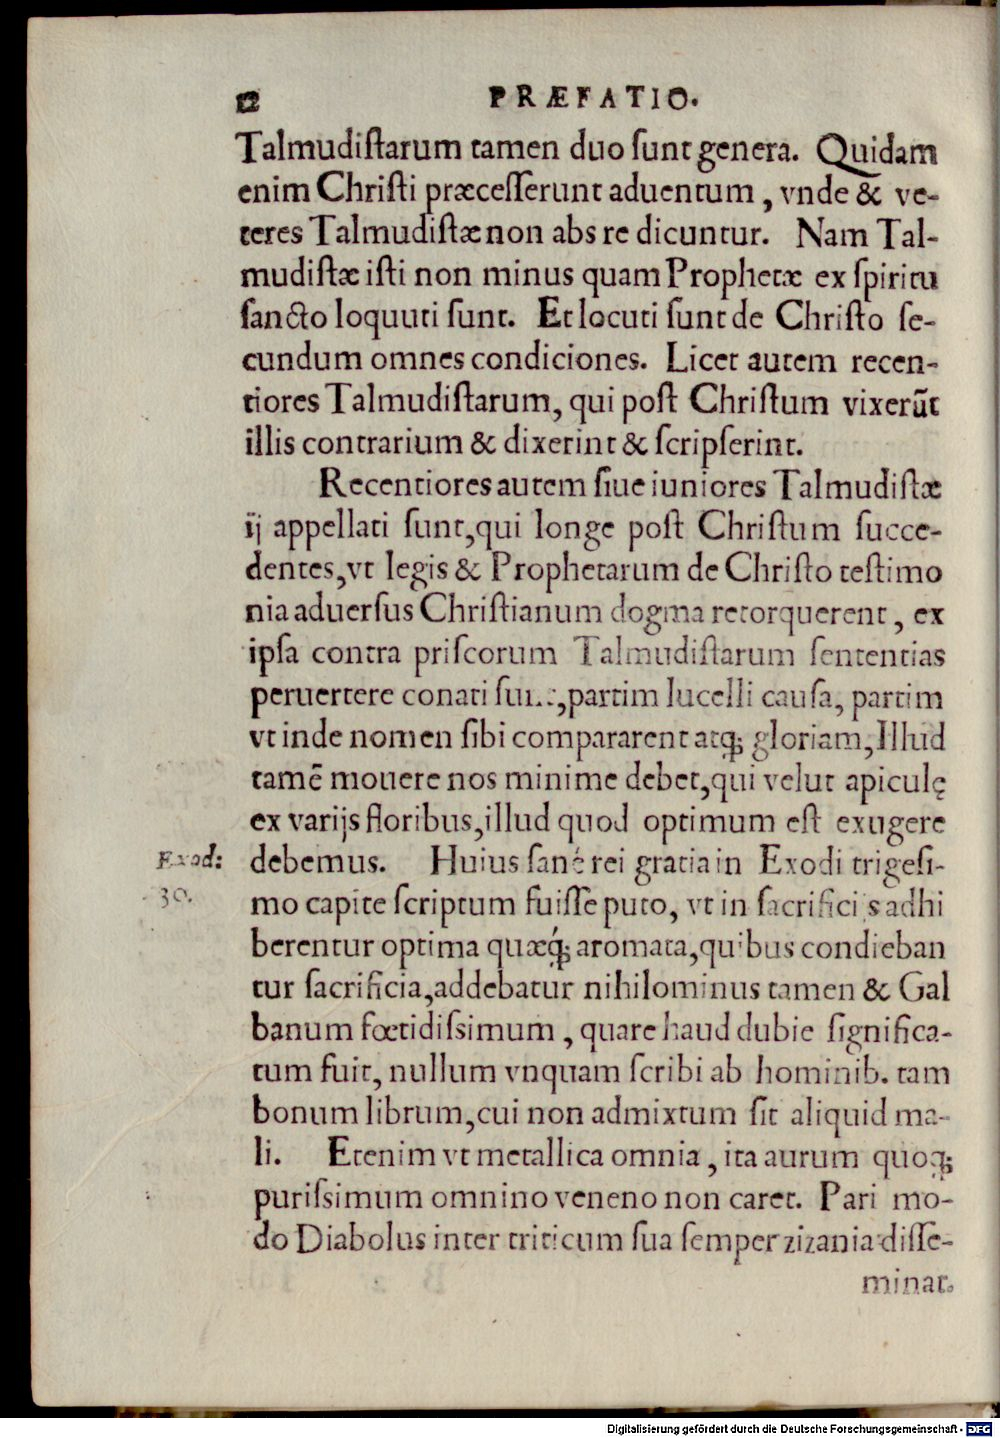 12 PRÆFATIO.
Talmudiſtarum tamen duo ſunt genera. Quidam
enim Chriſti præceſſerunt aduentum, vnde & ve-
teres Talmudiſtæ non abs re dicuntur. Nam Tal-
mudiſtæ iſti non minus quam Prophetæ ex ſpiritu
ſancto loquuti ſunt. Et locuti ſunt de Chriſto ſe-
cundum omnes condiciones. Licet autem recen-
tiores Talmudiſtarum, qui poſt Chriſtum vixerũt
illis contrarium & dixerint & ſcripſerint.
Recentiores autem ſiue iuniores Talmudiſtæ
ij appellati ſunt, qui longe poſt Chriſtum ſucce-
dentes, vt legis & Prophetarum de Chriſto teſtimo
nia aduerſus Chriſtianum dogma retorquerent, ex
ipſa contra priſcorum Talmudiſtarum ſententias
peruertere conati ſunt, partim lucelli cauſa, partim
vt inde nomen ſibi compararent atq; gloriam, Illud
tamẽ mouere nos minime debet, qui velut apiculę
ex varijs floribus, illud quod optimum eſt exugere
debemus. Huius ſanè rei gratia in Exodi trigeſi-
Exod:
30.
mo capite ſcriptum fuiſſe puto, vt in ſacrificijs adhi
berentur optima quæq́; aromata, quibus condieban
tur ſacrificia, addebatur nihilominus tamen & Gal
banum fœtidiſsimum, quare haud dubie ſignifica-
tum fuit, nullum vnquam ſcribi ab hominib. tam
bonum librum, cui non admixtum ſit aliquid ma-
li. Etenim vt metallica omnia, ita aurum quoq;
puriſsimum omnino veneno non caret. Pari mo-
do Diabolus inter triticum ſua ſemper zizania diſſe-
minat.
Digitalisierung gefördert durch die Deutsche Forschungsgemeinschaft - DFG